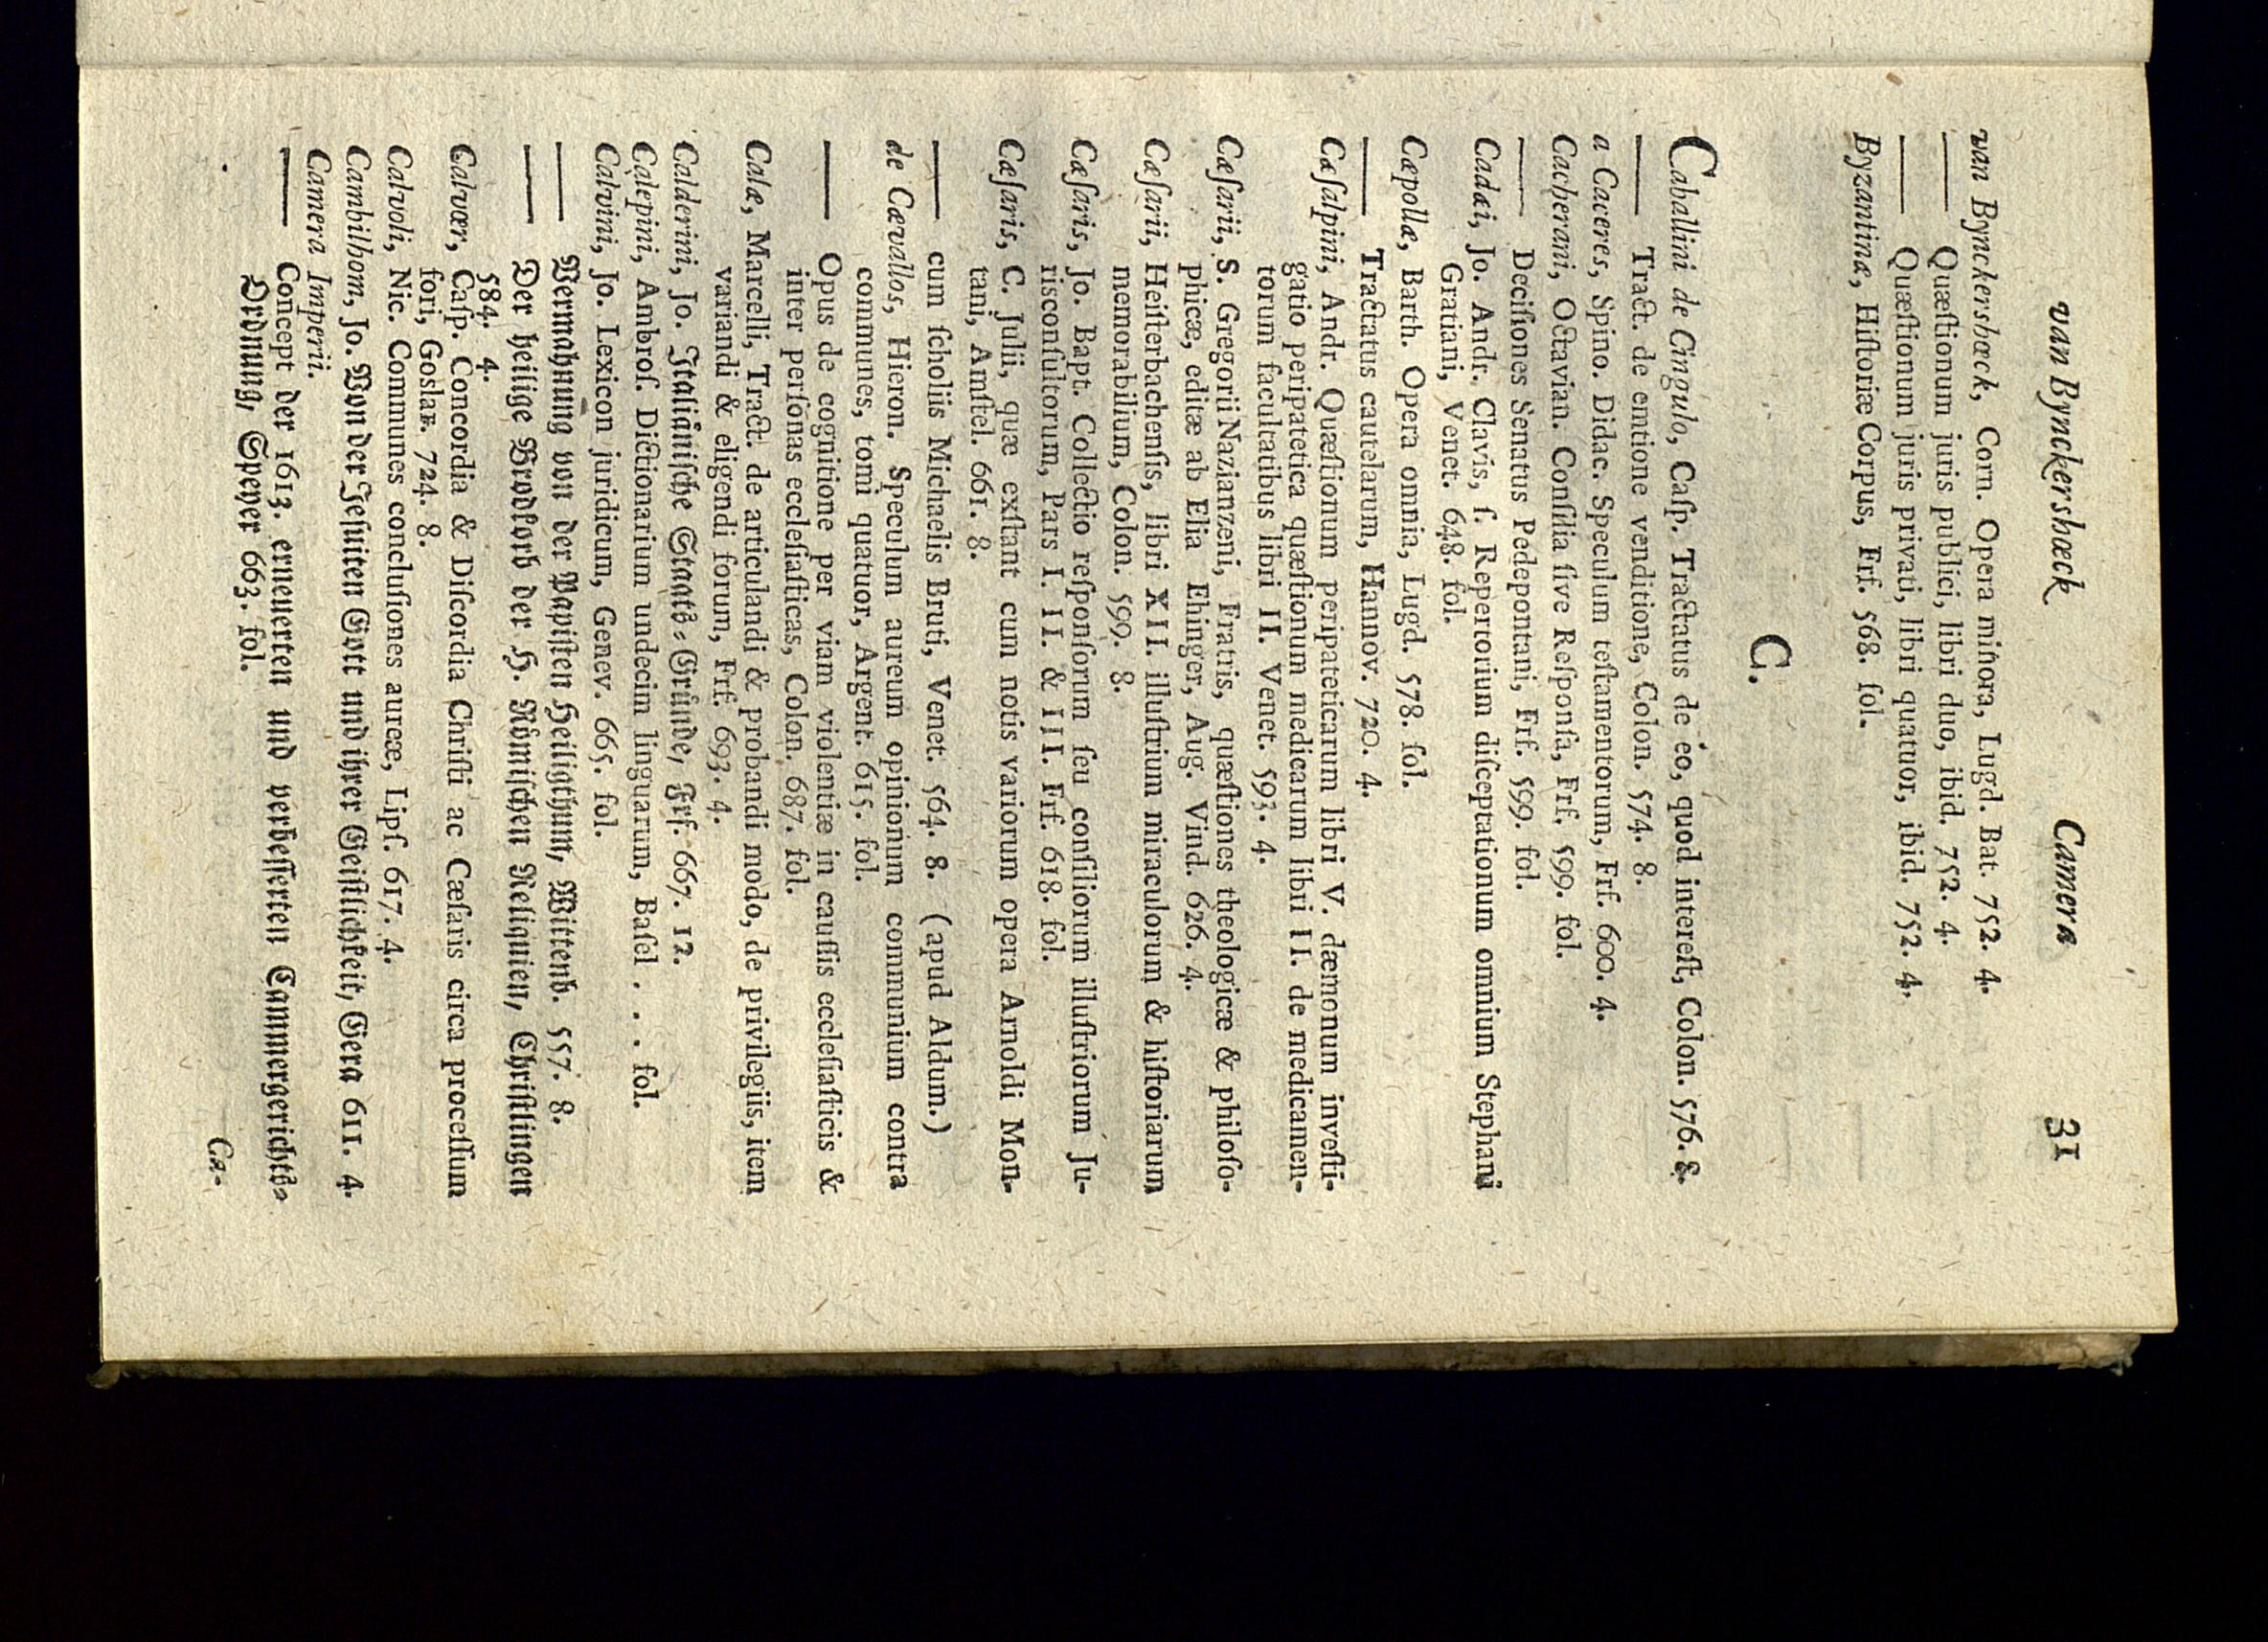 van Bynckershœck Camera 31
van Bynckershœck, Corn. Opera minora, Lugd. Bat. 752. 4.
—— Quæſtionum juris publici, libri duo, ibid. 752. 4.
—— Quæſtionum juris privati, libri quatuor, ibid. 752. 4.
Byzantinæ, Hiſtoriæ Corpus, Frf. 568. fol.
C.
Caballini de Cingulo, Caſp. Tractatus de eo, quod intereſt, Colon. 576. 8.
—— Tract. de emtione venditione, Colon. 574. 8.
a Caceres, Spino. Didac. Speculum teſtamentorum, Frf. 600. 4.
Cacherani, Octavian. Conſilia ſive Reſponſa, Frf. 599. fol.
—— Deciſiones Senatus Pedepontani, Frf. 599. fol.
Cadæi, Jo. Andr. Clavis, ſ. Repertorium diſceptationum omnium Stephani
Gratiani, Venet. 648. fol.
Cæpollæ, Barth. Opera omnia, Lugd. 578. fol.
—— Tractatus cautelarum, Hannov. 720. 4.
Cæſalpini, Andr. Quæſtionum peripateticarum libri V. dæmonum inveſti-
gatio peripatetica quæſtionum medicarum libri II. de medicamen-
torum facultatibus libri II. Venet. 593. 4.
Cæſarii, S. Gregorii Nazianzeni, Fratris, quæſtiones theologicæ & philoſo-
phicæ, editæ ab Elia Ehinger, Aug. Vind. 626. 4.
Cæſarii, Heiſterbachenſis, libri XII. illuſtrium miraculorum & hiſtoriarum
memorabilium, Colon. 599. 8.
Cæſaris, Jo. Bapt. Collectio reſponſorum ſeu conſiliorum illuſtriorum Ju-
risconſultorum, Pars I. II. & III. Frf. 618. fol.
Cæſaris, C. Julii, quæ exſtant cum notis variorum opera Arnoldi Mon-
tani, Amſtel. 661. 8.
—— cum ſcholiis Michaelis Bruti, Venet. 564. 8. (apud Aldum.)
de Cævallos, Hieron. Speculum aureum opinionum communium contra
communes, tomi quatuor, Argent. 615. fol.
—— Opus de cognitione per viam violentiæ in cauſſis eccleſiaſticis &
inter perſonas eccleſiaſticas, Colon. 687. fol.
Calæ, Marcelli, Tract. de articulandi & probandi modo, de privilegiis, item
variandi & eligendi forum, Frf. 693. 4.
Calderini, Jo. Italiäniſche Staats-Gründe, Frf. 667. 12.
Calepini, Ambroſ. Dictionarium undecim linguarum, Baſel . . . fol.
Calvini, Jo. Lexicon juridicum, Genev. 665. fol.
—— Vermahnung von der Papiſten Heiligthum, Wittenb. 557. 8.
—— Der heilige Brodkorb der H. Römiſchen Reliquien, Chriſtlingen
584. 4.
Calvœr, Caſp. Concordia & Diſcordia Chriſti ac Cæſaris circa proceſſum
fori, Goslar. 724. 8.
Calvoli, Nic. Communes concluſiones aureæ, Lipſ. 617. 4.
Cambilhom, Jo. Von der Jeſuiten Gott und ihrer Geiſtlichkeit, Gera 611. 4.
Camera Imperii.
—— Concept der 1613. erneuerten und verbeſſerten Cammergerichts-
Ordnung, Speyer 663. fol.
Ca-